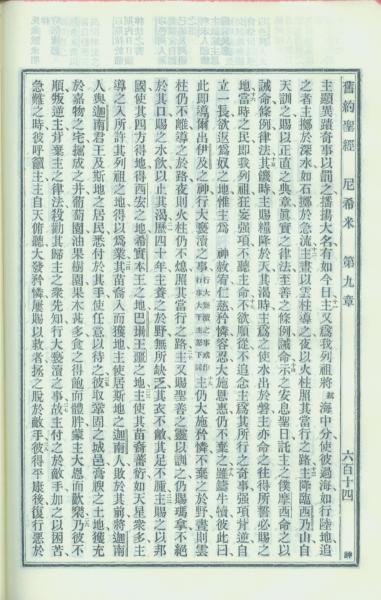 舊約聖經 尼希米 第九章 六百十四
主顯異蹟奇事以罰之播揚大名有如今日主又爲我列祖將海中分使彼過海如行陸地追
之者主擲於深水如石擲於急流主晝以雲柱導之夜以火柱照其當行之路主降臨西乃山自
天訓之賜以正直之典章眞實之律法至善之條例誡命示之安息聖日託主之僕摩西命之以
誡命條例律法其饑時主賜糧降於天其渴時主爲之使水出於磐主亦命之往得所誓必賜之
地當時之民即我列祖狂妄強項不聽主命不欲順從不追念主爲其所行之奇事強項背逆自
立一長欲返爲奴之地惟主爲神赦宥仁慈矜憐容忍大施恩惠仍不棄之雖鑄牛犢彼此曰
此即導爾出伊及之神行大褻瀆之事行大褻瀆之事或作行事大干主怒下同主仍大施矜憐不棄之於野晝則雲
柱仍不離導之於路夜則火柱仍不熄照其當行之路主又賜聖善之靈以訓之仍賜瑪拿不絕
於其口賜之水飲以止其渴歷四十年主養之於野無所缺乏其衣不敝其足不腫主賜之以邦
國使其四方得地得西宏之地希實本王之地巴珊王噩之地主使其苗裔蕃衍如天星衆多主
導之入所許其列祖之地得以爲業其苗裔入而獲地主使居斯地之迦南人敗於其前將迦南
人與迦南君王及斯地之居民悉付於其手使任意以待之彼取鞏固之城邑膏腴之土地獲充
於嘉物之宅掘成之井葡萄園油果樹園果木甚多食之得飽而體胖蒙主大恩而歡樂乃彼不
順叛逆主弁髦主之律法殺勸其歸主之衆先知行大褻瀆之事故主付之於敵手加之以困苦
急難之時彼呼籲主主自天俯聽大發矜憐屢賜以救者拯之脫於敵手彼得平康後復行惡於